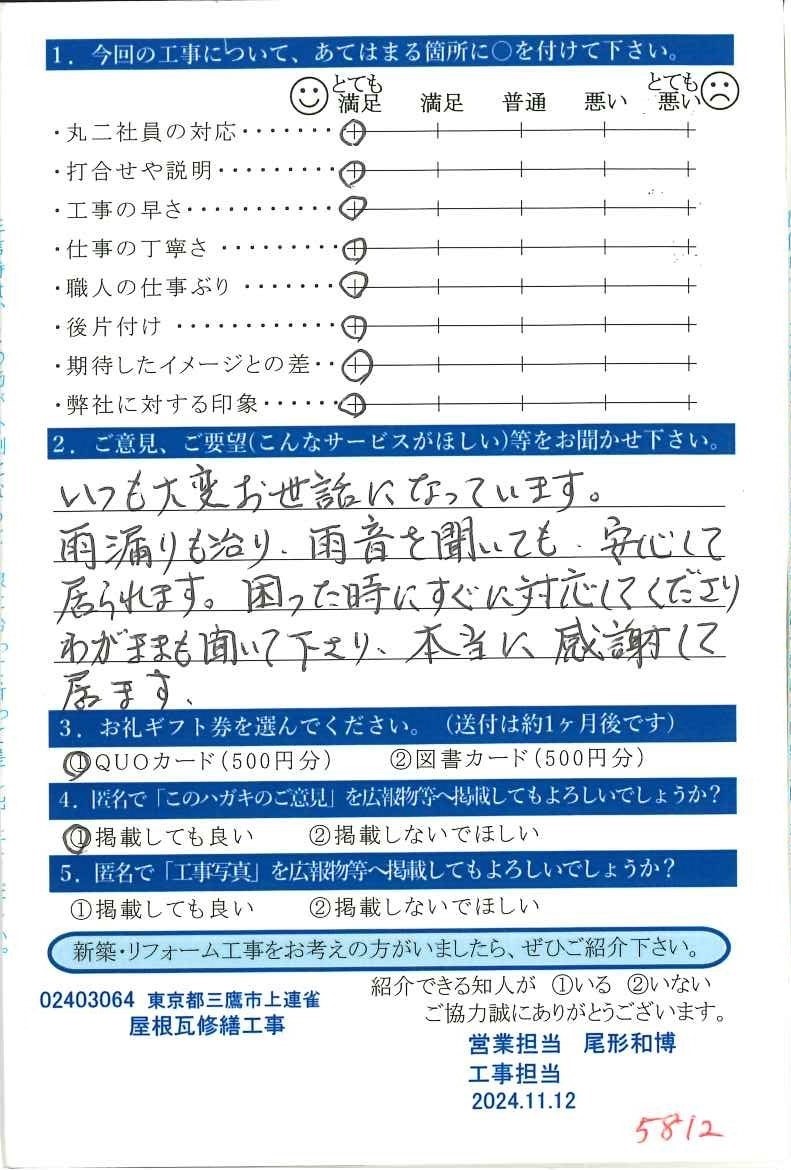 1．今回の工事について、あてはまる箇所に○を付けて下さい。
とても満足 満足 普通 悪い とても悪い
・丸二社員の対応・・・・・・・
・打合せや説明・・・・・・・・・
・工事の早さ・・・・・・・・・・・
・仕事の丁寧さ ・・・・・・・・・
・職人の仕事ぶり ・・・・・・・
・後片付け ・・・・・・・・・・・・
・期待したイメージとの差・・
・弊社に対する印象・・・・・・
2．ご意見、ご要望(こんなサービスがほしい)等をお聞かせ下さい。
いつも大変お世話になっています。
雨漏りも治り、雨音を聞いても、安心して
居られます。困った時にすぐに対応してくださり
わがままも聞いて下さり、本当に感謝して
居ます、
3．お礼ギフト券を選んでください。（送付は約1ヶ月後です）
①QUOカード(500円分) ②図書カード(500円分)
4．匿名で「このハガキのご意見」を広報物等へ掲載してもよろしいでしょうか?
①掲載しても良い ②掲載しないでほしい
5．匿名で「工事写真」を広報物等へ掲載してもよろしいでしょうか?
①掲載しても良い ②掲載しないでほしい
新築・リフォーム工事をお考えの方がいましたら、ぜひご紹介下さい。
紹介できる知人が ①いる ②いない
ご協力誠にありがとうございます。
02403064 東京都三鷹市上連雀
屋根瓦修繕工事
営業担当 尾形和博
工事担当
2024.11.12
5812